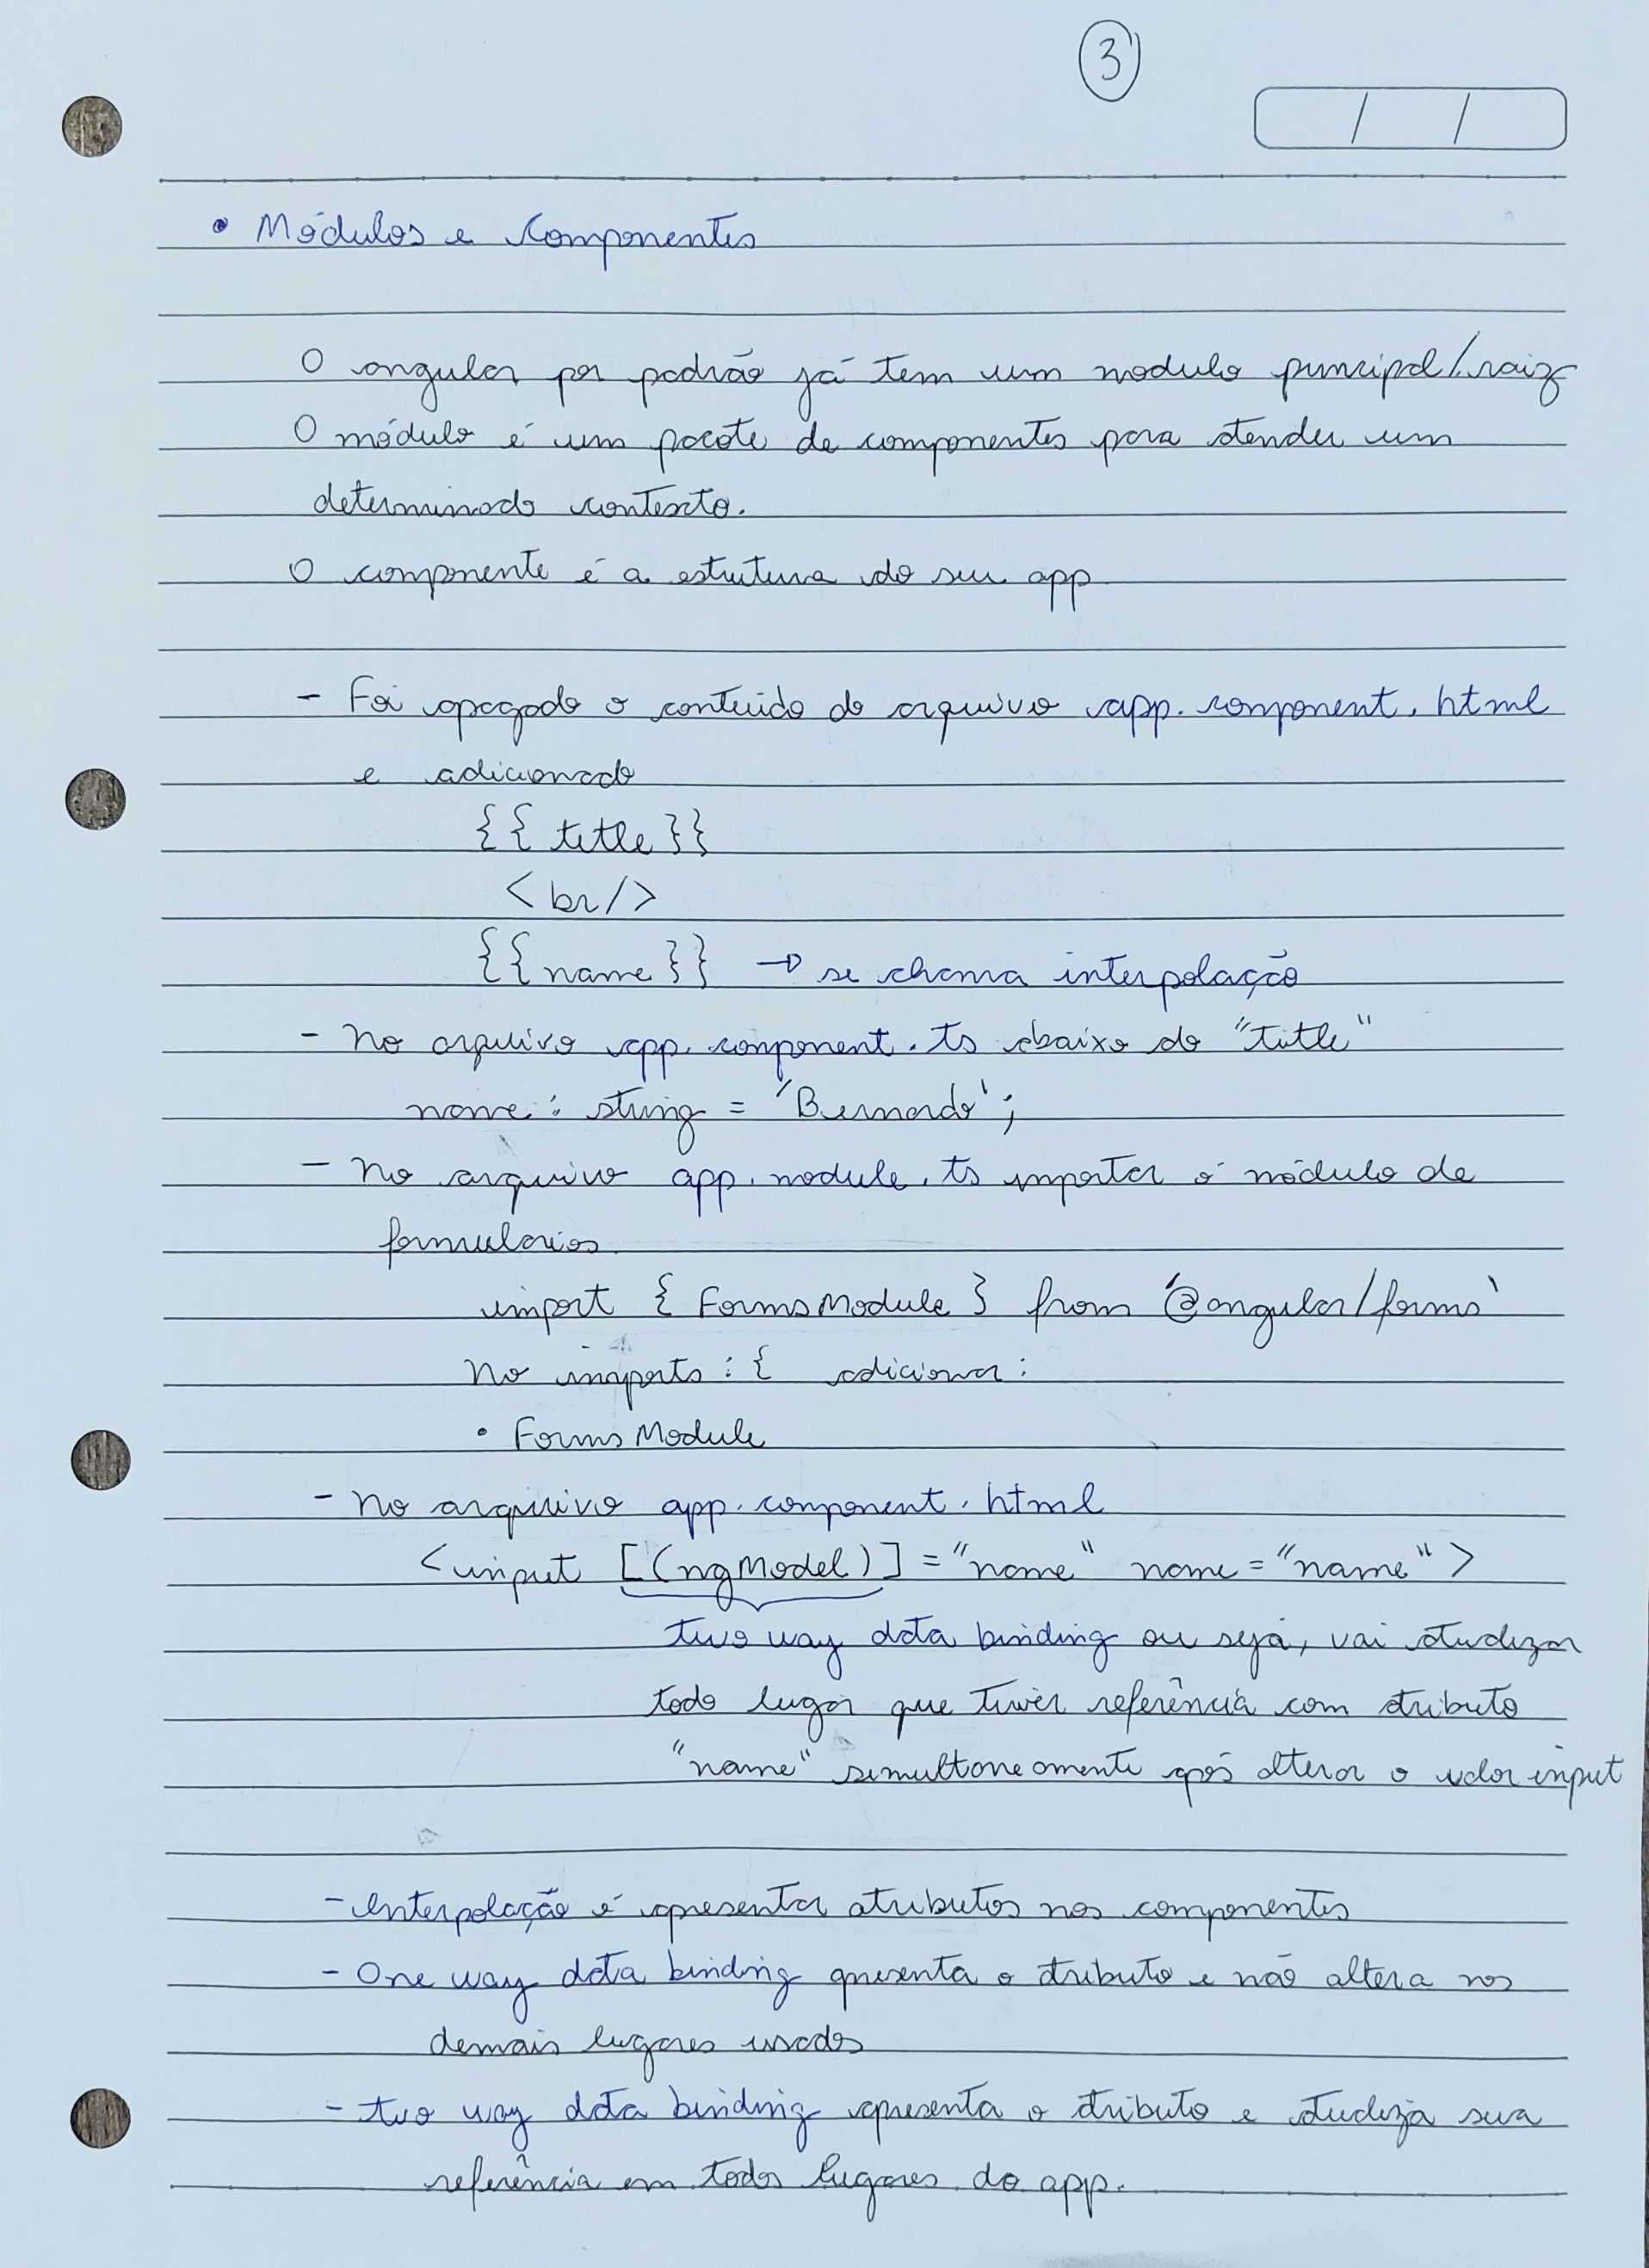 3
/ /
• Módulos e componentes
O angular por padrão já tem um modulo principal/raiz
O módulo é um pacote de componentes para atender um
determinado contexto.
O componente é a estrutura do seu app
- Foi apagado o conteúdo do arquivo app.component.html
e adicionado
{{ title }}
<br/>
{{ name }} → se chama interpolação
- No arquivo app.component.ts abaixo do "title"
name: string = 'Bernardo';
- No arquivo app.module.ts importar o módulo de
formularios
import { FormsModule } from '@angular/forms'
No imports: { adicionar:
• FormsModule
- No arquivo app.component.html
<input [(ngModel)] = "name" name = "name">
two way data binding ou seja, vai atualizar
todo lugar que tiver referência com atributo
"name" simultoneamente após alterar o valor input
- Interpolação é apresentar atributos nos componentes
- One way data binding apresenta o atributo e não altera nos
demais lugares usados
- two way data binding apresenta o atributo e atualiza sua
referência em todos lugares do app.